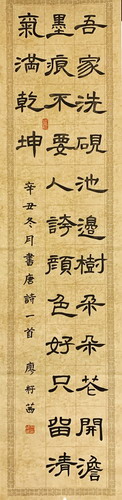 吾家洗硯池邊樹朵朵花開澹
墨痕不要人誇顏色好只留清
氣滿乾坤
辛丑冬月書唐詩一首 廖